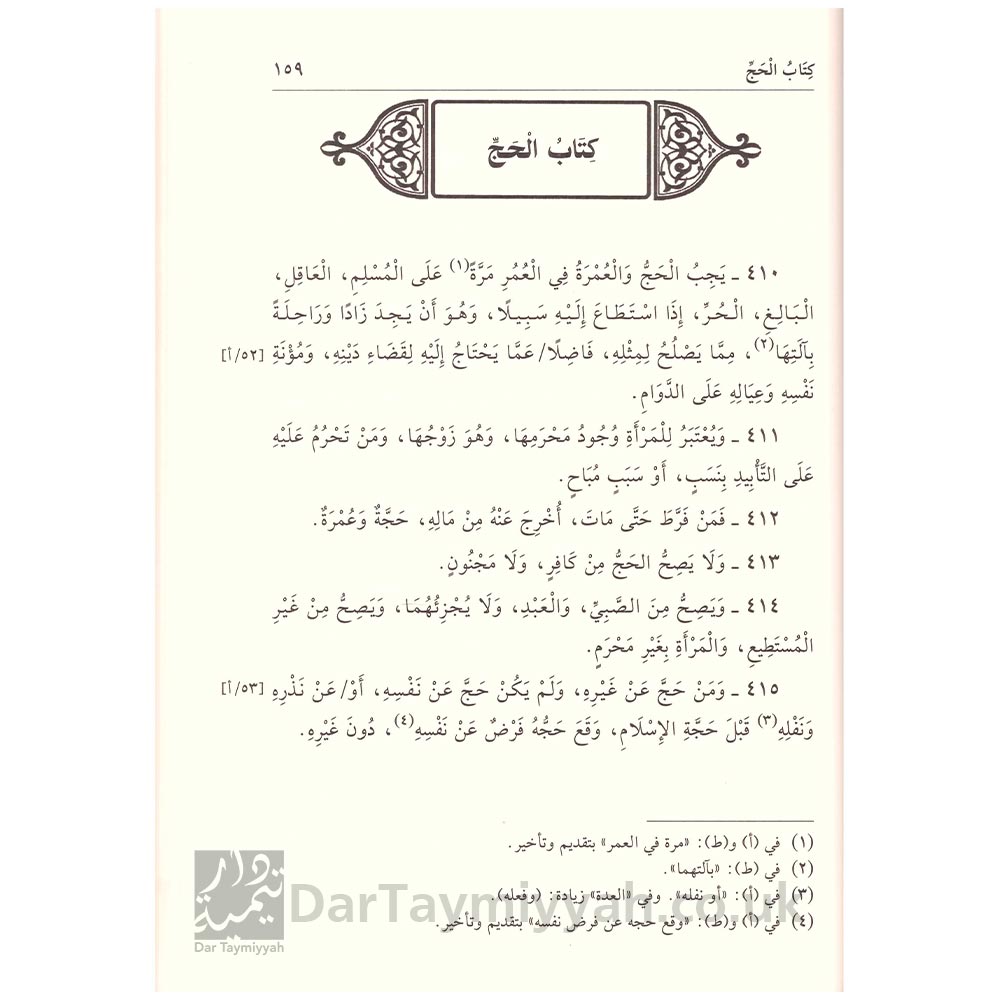 كِتَابُ الْحَجِّ ١٥٩
كِتَابُ الْحَجِّ
٤١٠ ـ يَجِبُ الْحَجُّ وَالْعُمْرَةُ فِي الْعُمُرِ مَرَّةً(١) عَلَى الْمُسْلِمِ، الْعَاقِلِ،
الْبَالِغِ، الْحُرِّ، إِذَا اسْتَطَاعَ إِلَيْهِ سَبِيلًا، وَهُوَ أَنْ يَجِدَ زَادًا وَرَاحِلَةً
بِآلَتِهَا(٢)، مِمَّا يَصْلُحُ لِمِثْلِهِ، فَاضِلًا/ عَمَّا يَحْتَاجُ إِلَيْهِ لِقَضَاءِ دَيْنِهِ، وَمُؤْنَةِ [٥٢/أ]
نَفْسِهِ وَعِيَالِهِ عَلَى الدَّوَامِ.
٤١١ ـ وَيُعْتَبَرُ لِلْمَرْأَةِ وُجُودُ مَحْرَمِهَا، وَهُوَ زَوْجُهَا، وَمَنْ تَحْرُمُ عَلَيْهِ
عَلَى التَّأْبِيدِ بِنَسَبٍ، أَوْ سَبَبٍ مُبَاحٍ.
٤١٢ ـ فَمَنْ فَرَّطَ حَتَّى مَاتَ، أُخْرِجَ عَنْهُ مِنْ مَالِهِ، حَجَّةٌ وَعُمْرَةٌ.
٤١٣ ـ وَلَا يَصِحُّ الحَجُّ مِنْ كَافِرٍ، وَلَا مَجْنُونٍ.
٤١٤ ـ وَيَصِحُّ مِنَ الصَّبِيِّ، وَالْعَبْدِ، وَلَا يُجْزِئُهُمَا، وَيَصِحُّ مِنْ غَيْرِ
الْمُسْتَطِيعِ، وَالْمَرْأَةِ بِغَيْرِ مَحْرَمٍ.
٤١٥ ـ وَمَنْ حَجَّ عَنْ غَيْرِهِ، وَلَمْ يَكُنْ حَجَّ عَنْ نَفْسِهِ، أَوْ/ عَنْ نَذْرِهِ [٥٣/أ]
وَنَفْلِهِ(٣) قَبْلَ حَجَّةِ الإِسْلَامِ، وَقَعَ حَجُّهُ فَرْضٌ عَنْ نَفْسِهِ(٤)، دُونَ غَيْرِهِ.
(١) في (أ) و(ط): «مرة في العمر» بتقديم وتأخير.
(٢) في (ط): «بآلتهما».
(٣) في (أ): «أو نفله». وفي «العدة» زيادة: (وفعله).
(٤) في (أ) و(ط): «وقع حجه عن فرض نفسه» بتقديم وتأخير.
دار تيمية
Dar Taymiyyah
DarTaymiyyah.co.uk